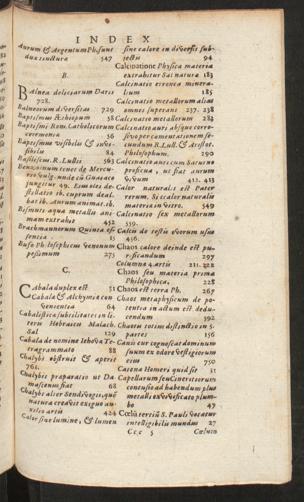 INDEX
Aurum & Argentum Ph. sunt
dux tinctura 547
B.
Balnea deliciarum Daris
728.
Balneorum diversitas 729
Baptismus Æthiopum 58
Baptismi Rom. Catholicorum
ceremonia 56
Baptismus visibilis & invisibilis
84
Basiliscus R. Lullii 563
mam extrahit 452
Brachmannorum Quinta essentia
15
Bufo Ph. losophicus venenum
pessimum 275
C.
Cabala duplex est 51
Cabala & Alchymia conveniunt
64
Cabalistica subtilitates in literis
Hebraicu Malach.
Sal 129
Cabala de nomine Iehova Tetragrammato
88
Chalybs destruit & aperit
761.
Chalybis praparatio ut Damascenus
fiat 68
Chalybs alter Sendivogii, quē
natura creavit exiguo auxilio
artis 424
Calor sine lumine, & lumen
sine calore in diversis subjectis
94
Calcinatione Physica materia
extrahitur Sat natura 183
Calcinatio etrenea mineralium
185
Calcinatio metallorum alias
omnes superans 237. 238
Calcinatio metallorum 284
Calcinatio auri absque corrosivo
per amalgamationem secundum
R. Lull. & Aristot.
Philosophum. 290
Calcinatio auri cum Saturno
proficua, ut fiat aurum
vivum 412. 413
Calor naturalis est Pater
rerum, Sic calor naturalis
materia in vitro. 549
Calcinatio sex metallorum
559.
Calcii de testis ovorum usus
456
Chaos calore deinde est purificandum
297
Columna 4 artis 211. 222
Chaos seu materia prima
Philosophica, 228
Chaos est terra Ph. 267
Chaos metaphysicum de potentia
in actum est deducendum
392
Chaoticus totius distinctio in 5.
partes 156
Canis cur cognoscat dominum
suum ex odore vestigiorum
eius 750
Catena Homeri quid sit 31
Capellarum seu Cineritiorum
confusio ad habendum plus
metalli ex vivis effecto plumbo
47
Cœlū tertiū S. Pauli vocatur
intelligibilis mundus 27
Ccc 5 Cœlum